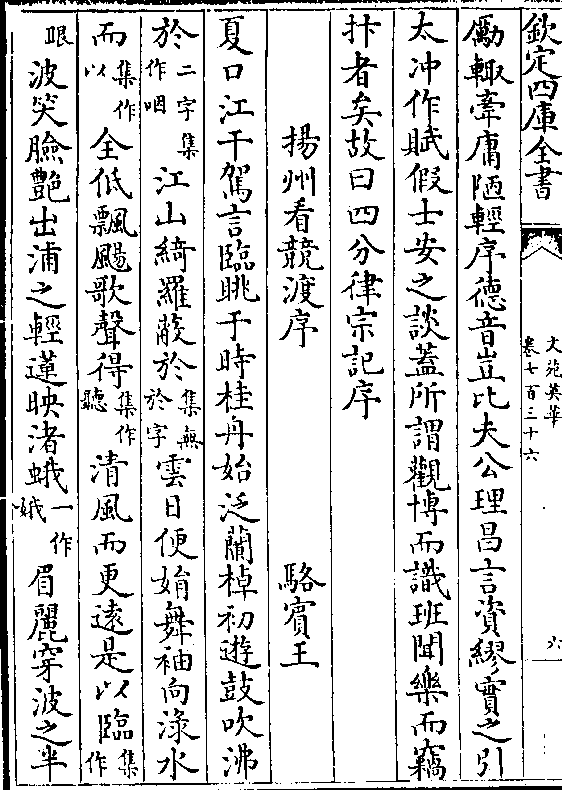 欽定四庫全書
文苑英華
卷七百三十六
六
勵輙牽庸陋輕序德音豈比夫公理昌言資繆實之引
太冲作賦假士安之談蓋所謂觀博而識班聞樂而竊
抃者矣故曰四分律宗記序
揚州看競渡序 駱賓王
夏口江干駕言臨眺于時桂舟始泛蘭棹初遊鼓吹沸
於二字集作咽江山綺羅蔽於集無於字雲日便娟舞袖向淥水
而集作以全低飄颺歌聲得集作聽清風而更遠是以臨集作
眼波笑臉艶出浦之輕蓮映渚蛾一作娥眉麗穿波之半